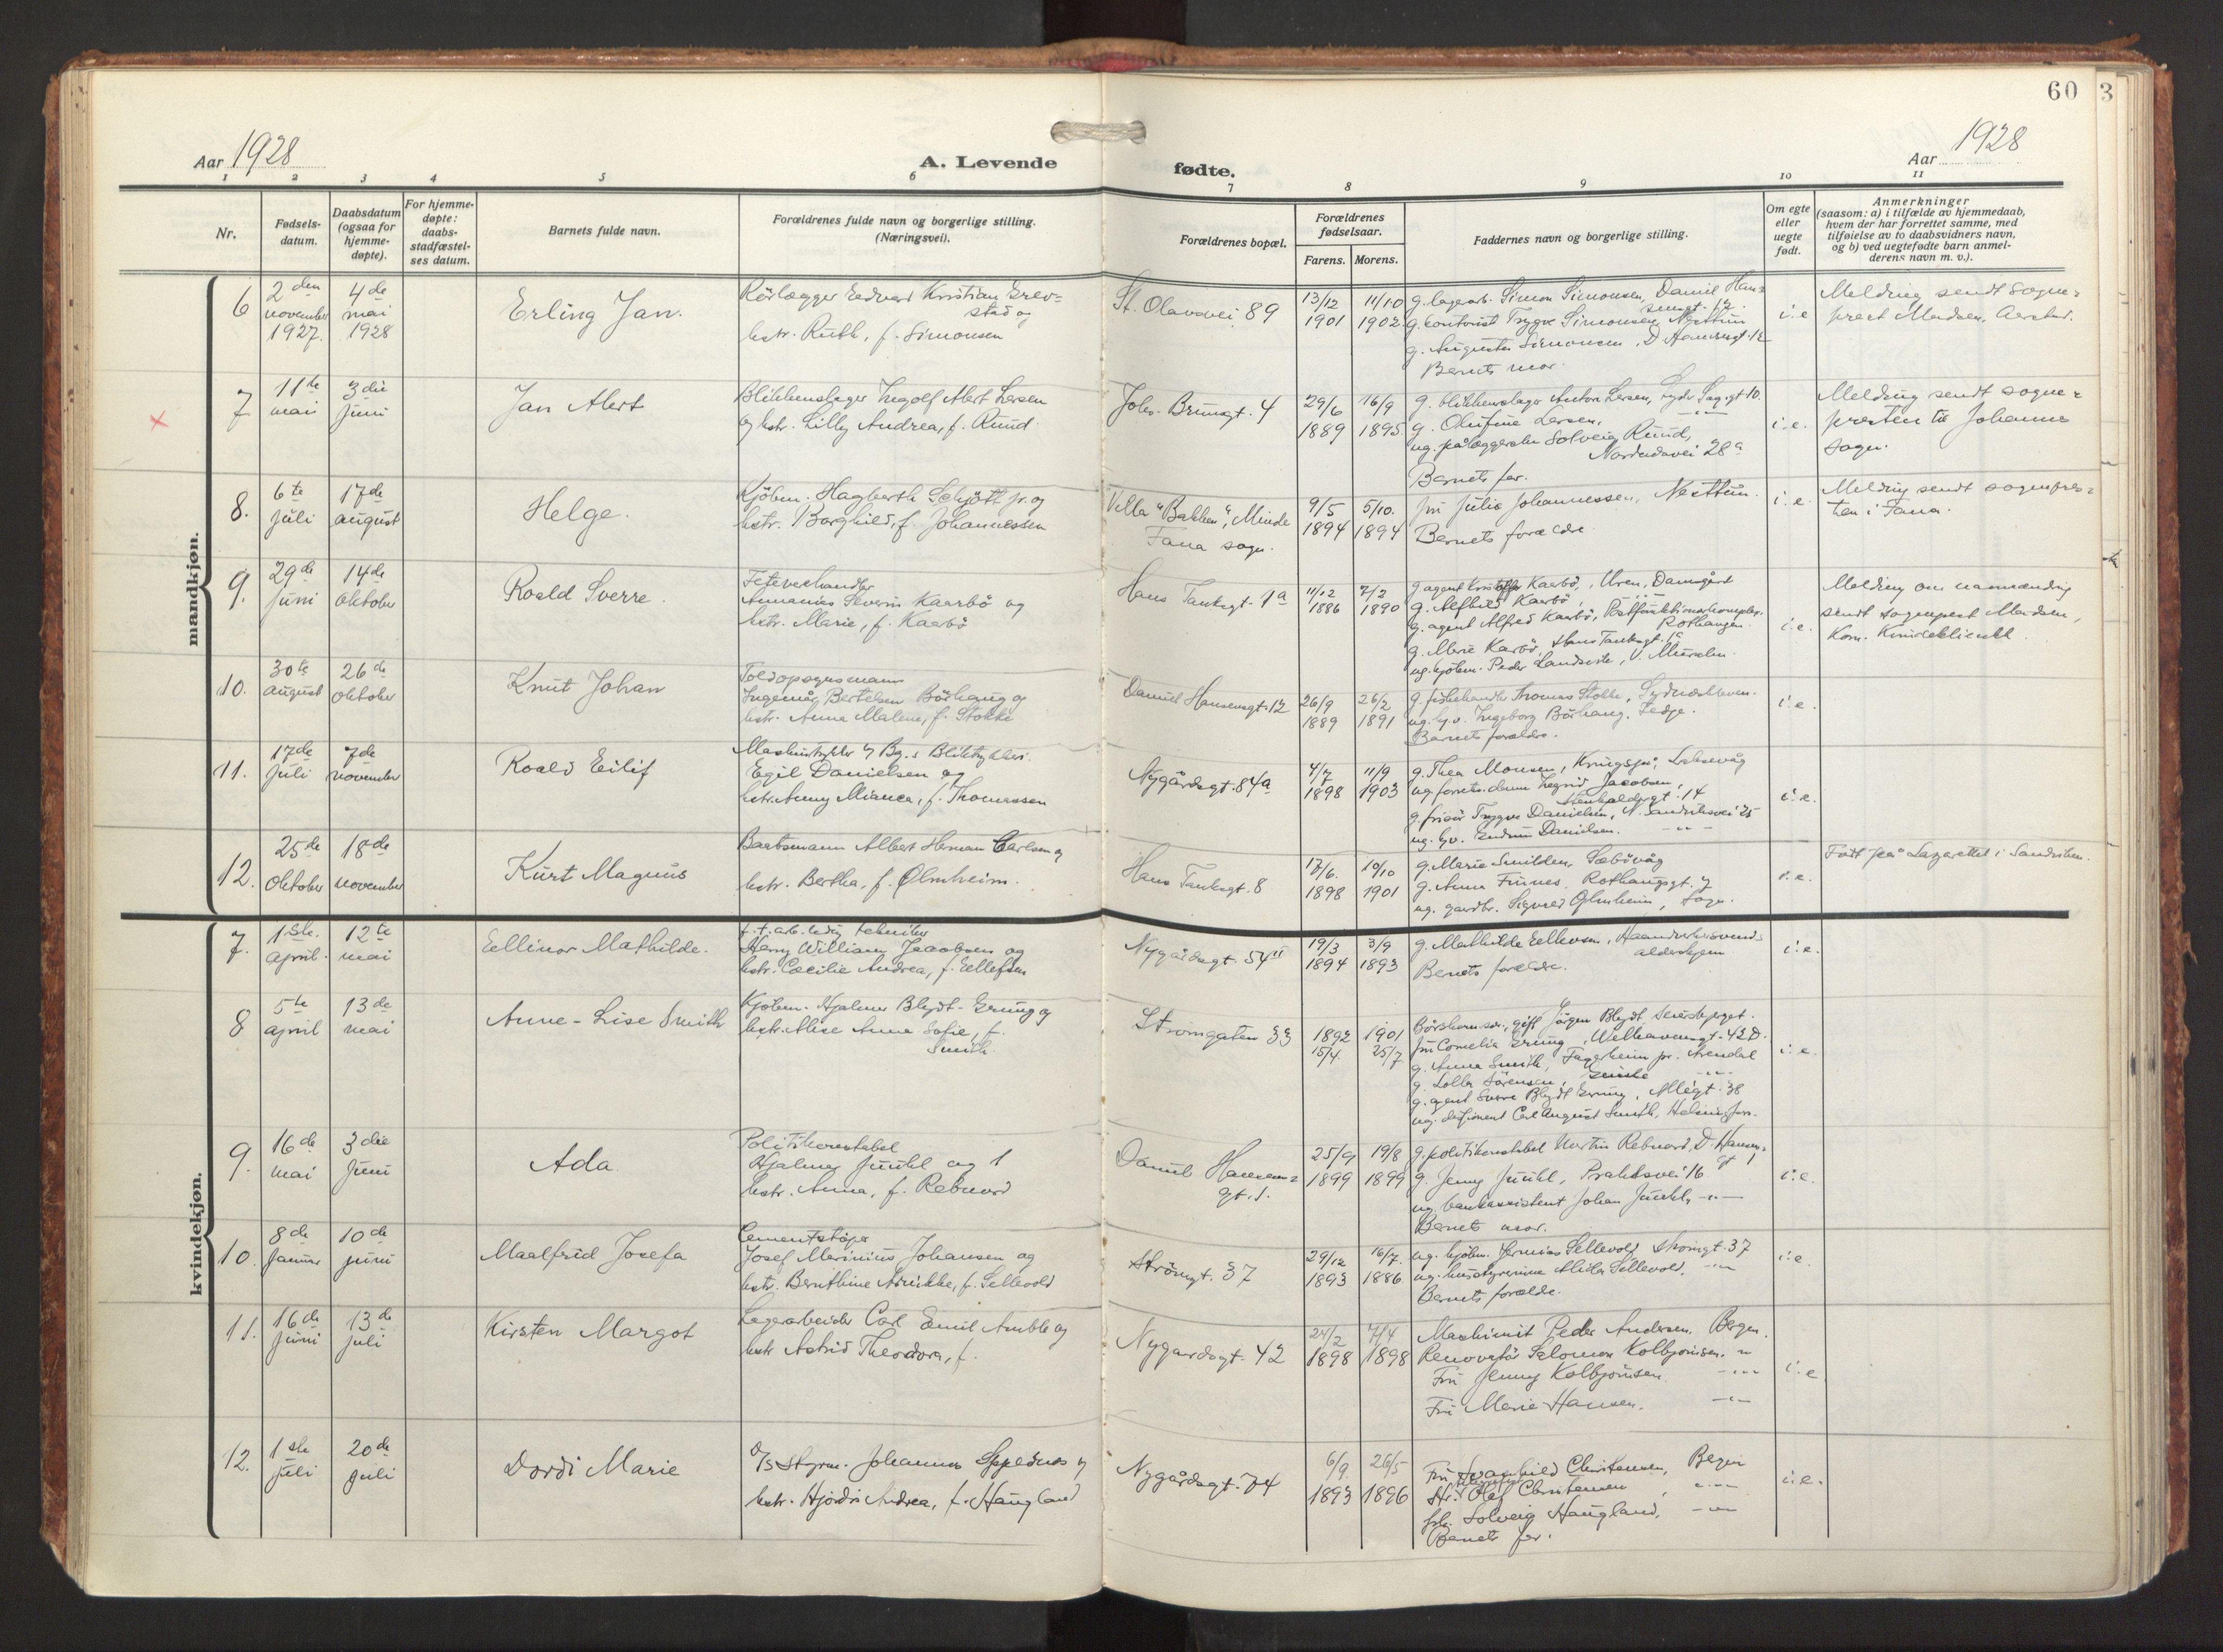 60
3
Aar 1928
A. Levende
fødte.
Aar 1928
1 2 3 4 5 6 7 8 9 10 11
Nr.
Fødsels-
datum.
Daabsdatum
(ogsaa for
hjemme-
døpte).
For hjemme-
døpte:
daabs-
stadfæstel-
ses datum.
Barnets fulde navn.
Forældrenes fulde navn og borgerlige stilling.
(Næringsvei).
Forældrenes bopæl.
Forældrenes
fødselsaar.
Farens. Morens.
Faddernes navn og borgerlige stilling.
Om egte
eller
uegte
født.
Anmerkninger
(saasom: a) i tilfælde av hjemmedaab,
hvem der har forrettet samme, med
tilføielse av to daabsvidners navn,
og b) ved uegtefødte barn anmel-
derens navn m. v.).
mandkjøn.
6
2den november 1927.
4de mai 1928
Erling Jan.
Rörlægger Edvard Kristian
stad og
hstr. Ruth, f. Simonsen
St. Olavsvei 89
13/12 1901
11/10 1902
g. lagerarb. Simon Simonsen, Daniel Han=
sensgt. 12
g. kontorist Trygve Simonsen, Nesttun
g. Augusta Simonsen, D. Hansensgt. 12
Barnets mor.
i. e
Melding sendt sogne=
prest Madsen, Aarstad.
7
11te mai
3die juni
Jan Alert
Blikkenslager Ingolf Alert Larsen
og hstr. Lilly Andrea, f. Rund.
Johs. Brunsgt. 4
29/6 1889
16/9 1895
g. blikkenslager Anton Larsen, Lyder Sagsgt 10.
g. Olufine Larsen, -"-
ug. pålæggerske Solveig Rund,
28a
Barnets far.
i. e.
Melding sendt sogne=
presten til Johannes
sogn.
8.
6te juli
17de august
Helge.
Kjöbm. Hagbarth Schjött jr. og
hstr. Borghild, f. Johannessen
Villa "Bakken", Minde
Fana sogn.
9/5 1894
5/10. 1894
fru Julie Johannessen, Nesttun.
Barnets forældre
i. e.
Melding sendt sognepres=
ten i Fana.
9.
29de juni
14de oktober
Roald Sverre.
Fetevarehandler
Annanias Severin Kaarbö og
hstr. Marie, f. Kaarbö
Hans Tanksgt. 1a
11/12 1886
7/2 1890
g. agent Kristoffer Kaarbö, Uren, Damsgård
g. Alfhild Kaarbö, -"-
g. agent Alfred Kaarbö, Postfunktionærkompleks.
Rothaugen.
g. Marie Karbö, Hans Tanksgt. 1a
ug. kjöbm. Peder Landsvik, V. Muralm.
i. e.
Melding om navnending
sendt sogneprest Madsen,
Kom. Kvinneklinikk.
10.
30te august
26de oktober
Knut Johan
Toldopsynsmann
Ingemår Bertelsen Börhaug og
hstr. Anna Malene, f. Stokke
Daniel Hansensgt. 12
26/9 1889
26/2 1891
g. fiskehandler Thomas Stokke, Sydneskleven.
ug. hjv. Ingeborg Börhaug. Fedje.
Barnets forældre.
i. e.
11.
17de juli
7de november
Roald Eilif
Maskintrykker v/ Bg.s Bliktrykkeri.
Egil Danielsen og
hstr. Anny Mianca, f. Thomassen
Nygårdsgt. 84a
4/7 1898
11/9 1903
g. Thea Monsen, Kringsjå, Laksevåg
ug. forretn.dame Ingrid Jacobsen,
14
g. frisör Trygve Danielsen, N. Sandviksvei 25
ug. hjv. Gudrun Danielsen. -"-
i. e.
12.
25de oktober
18de november
Kurt Magnus
Baatsmann Albert Herman Carlsen og
hstr. Bertha, f. Ölmheim.
Hans Tanksgt. 8
13/6. 1898
10/10 1901
g. Marie Smilden, Sæbövåg
g. Anna Finnes, Rothaugsgt. 7
ug. gaardbr. Sigurd Ölmheim, Sogn.
i. e.
Född på Lazarettet i Sandviken.
kvindekjøn.
7.
1ste. april.
12te mai
Eellinor Mathilde.
f. t. arb. ledig tekniker
Harry William Jacobsen og
hstr. Cecilie Andrea, f. Eellefsen
Nygårdsgt. 54II
19/3 1894
3/9 1893
g. Mathilde Eellevsen, Haandverkersvend.
aldershjem
Barnets forældre.
i. e.
8
5te april
13de mai
Anne-Lise Smith
Kjöbm. Hjalmar Blydt-Grung og
hstr. Alise Anna Sofie, f.
Smith
Strömgaten 33
1892 15/4.
1901 25/7
gift Jörgen Blydt
fru Cornelia Grung, Welhavensgt. 42D.
g. Anna Smith, Fagerheim pr. Arendal
g. Lolla Sörensen, -"-
g. agent Sverre Blydt Grung, Allégt. 38
ug. disponent Carl August Smith, Helsingfors.
i. e.
9.
16de mai
3die juni
Ada
Politikonstabel
Hjalmar Juuhl og
hstr. Anna, f. Rebnord
Daniel Hansens=
gt. 1.
25/9 1899
19/8 1899
g. politikonstabel Martin Rebnord, D. Hansens=
gt 1
g. Jenny Juuhl, 16
ug. bankassistent Johan Juuhl, -"-
Barnets mor.
i. e.
10.
8de januar
10de juni
Maalfrid Josefa
Cementstöper
Josef Marinius Johansen og
hstr. Bernthine Arikke, f. Sellevold
Strömgt. 37
29/12 1893
16/7. 1886
ug. kjöbm. Jermias Sellevold, Strömgt. 37
ug. husstyrerinne Alida Sellevold. -"-
Barnets forældre.
i. e.
11.
16de juni
13de juli
Kirsten Margot
Lagerarbeider Carl Emil Amble og
hstr Astrid Theodora, f.
Nygaardsgt. 42
24/2 1898
7/4 1898
Maskinist Peder Andersen. Bergen.
Renovatör Salomon Kolbjörnsen. "
Fru Jenny Kolbjörnsen. -"-
Fru Marie Hansen. -"-
i. e
12.
1ste juli
20de juli
Dordi Marie
Styrm. Johannes og
hstr. Hjördis Andrea, f. Haugland
Nygårdsgt. 74
6/9. 1893
26/5 1896
Fru Svanhild Christensen, Bergen
Hr. Olaf Christensen, -"-
frk. Solveig Haugland, -"-
Barnets far.
i. e.